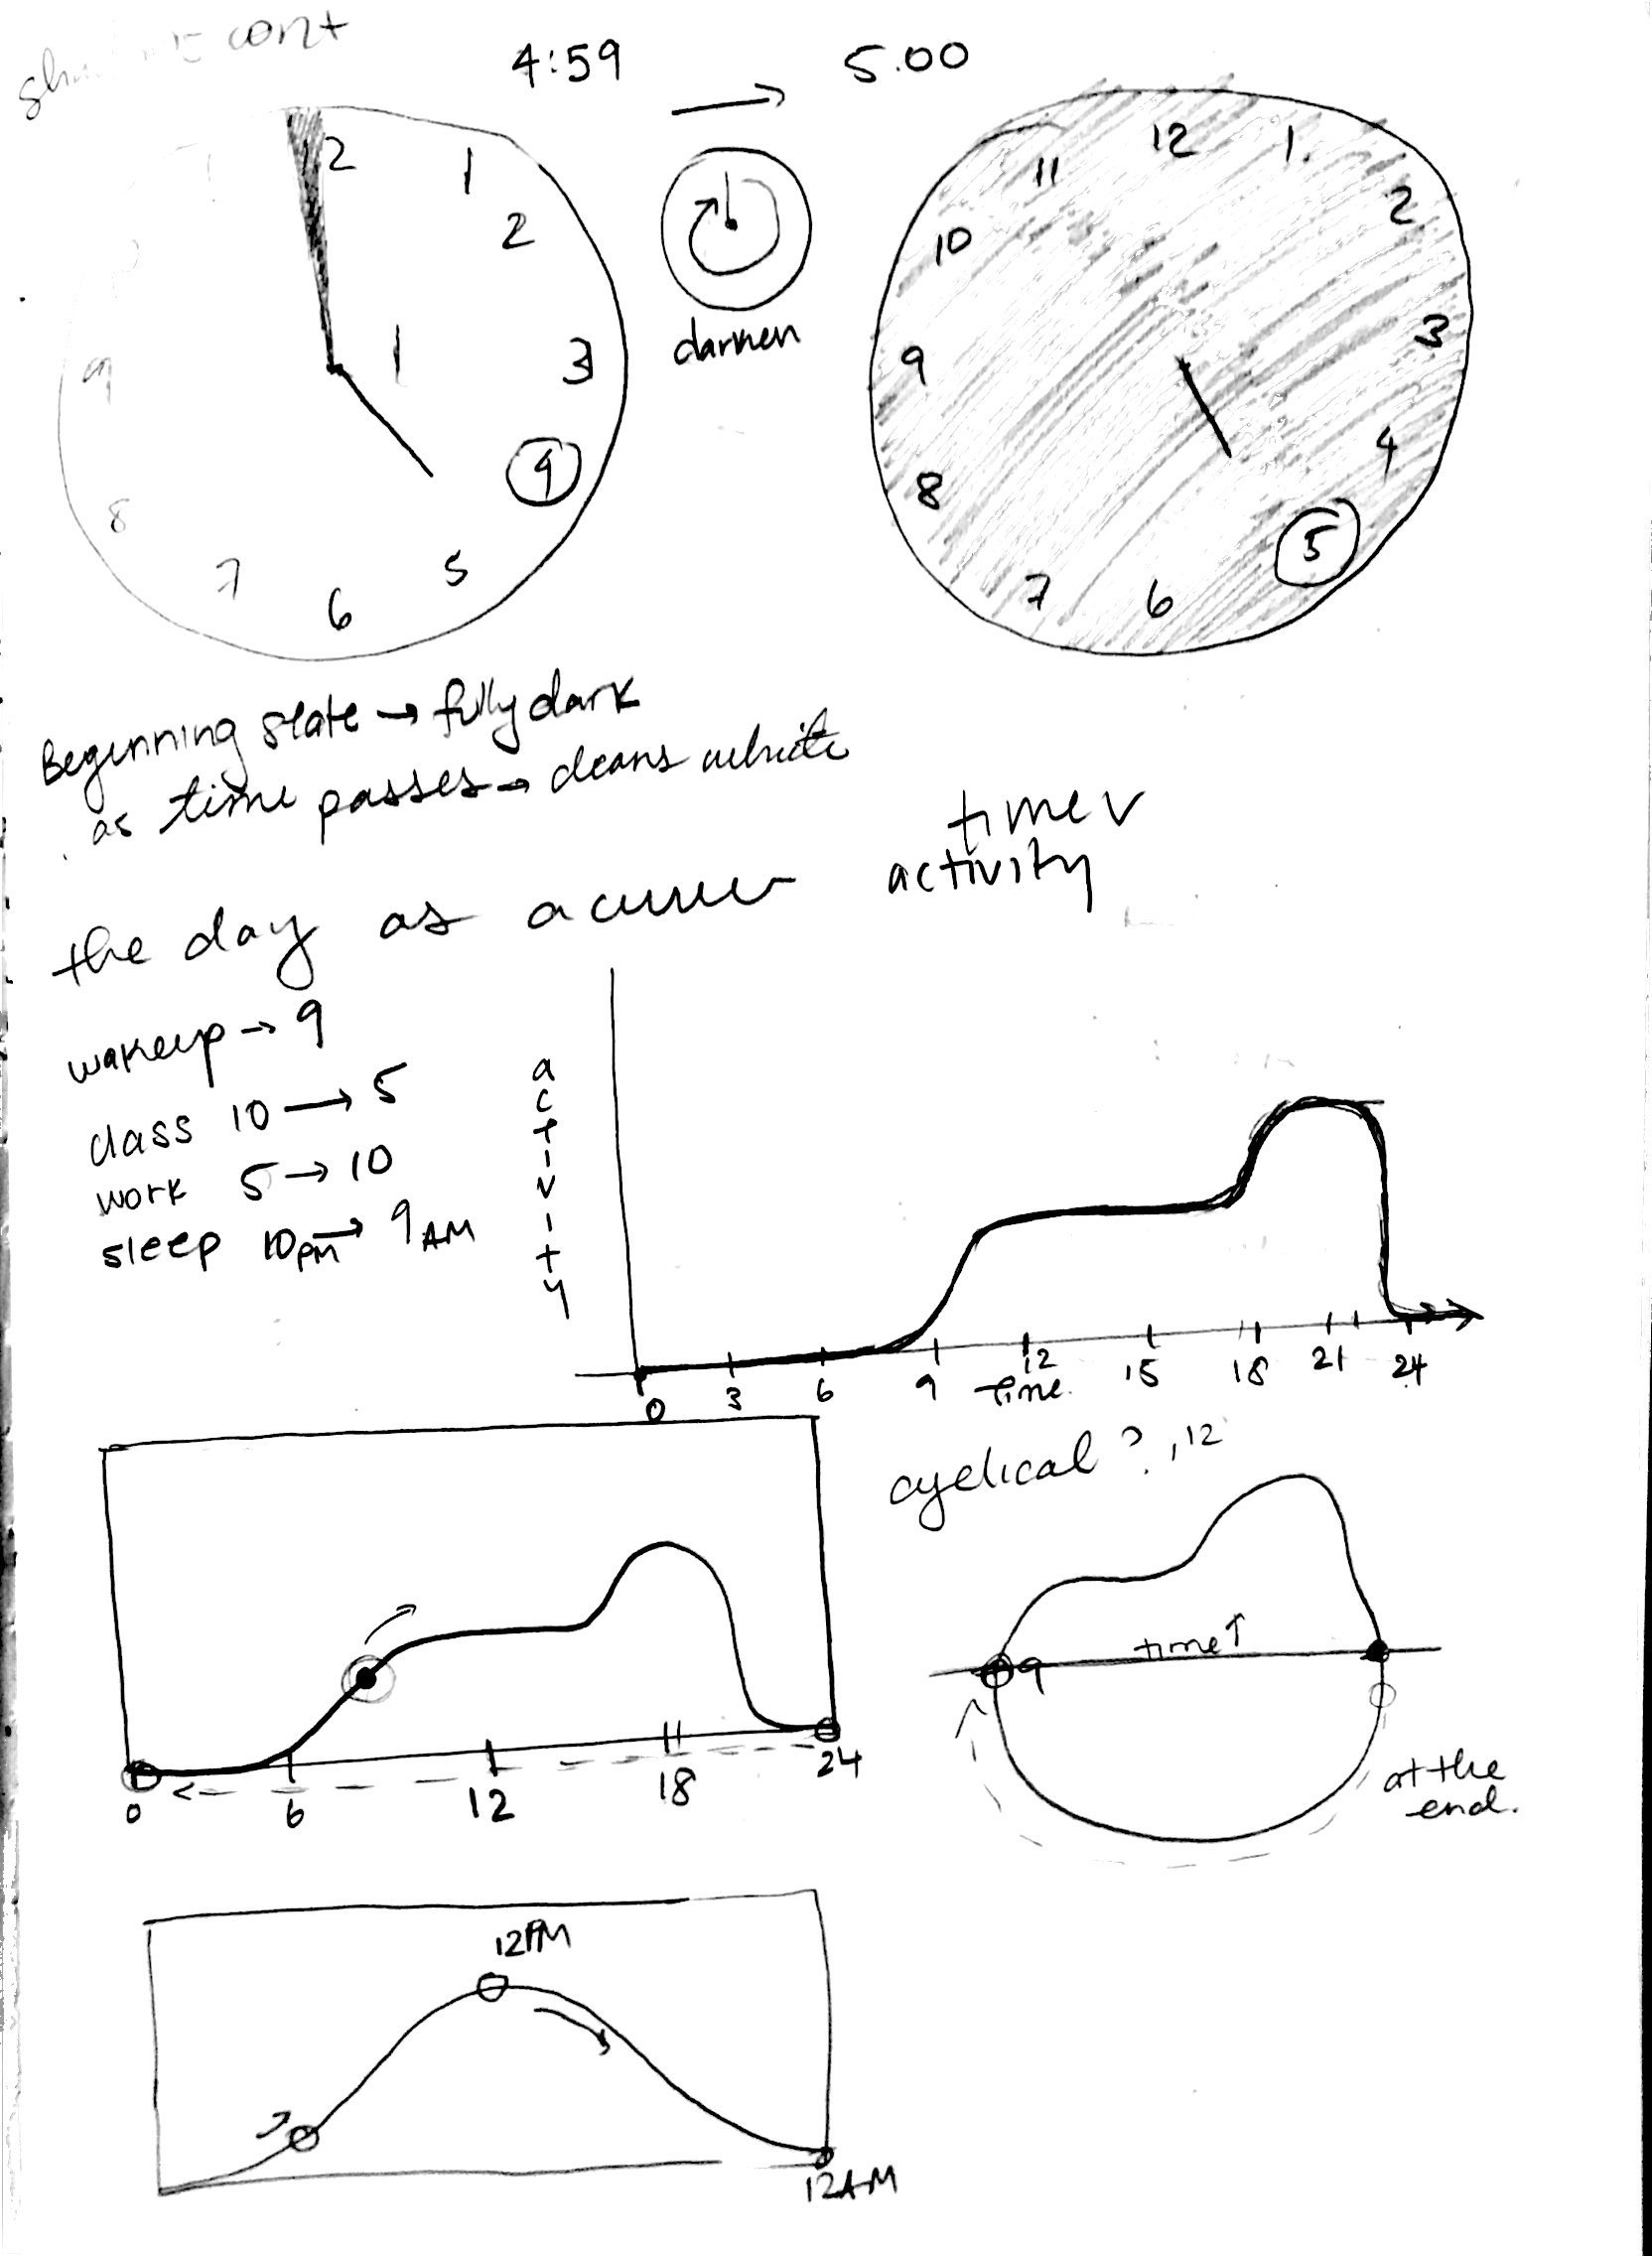 cont
4:59 → 5.00
12 1 2 3 9 5 6 7 8 9
1
darken
12 1. 2 3 4 5 6 7 8 9 10 11
Beginning state → fully dark
as time passes → cleans white
the day as a curve
time v
activity
wakeup → 9
class 10 → 5
work 5 → 10
sleep 10PM → 9AM
activity
0 3 6 9 12 15 18 21 24
time.
cyclical?, 12
time↑
9
at the
end.
0 6 12 18 24
12PM
12AM